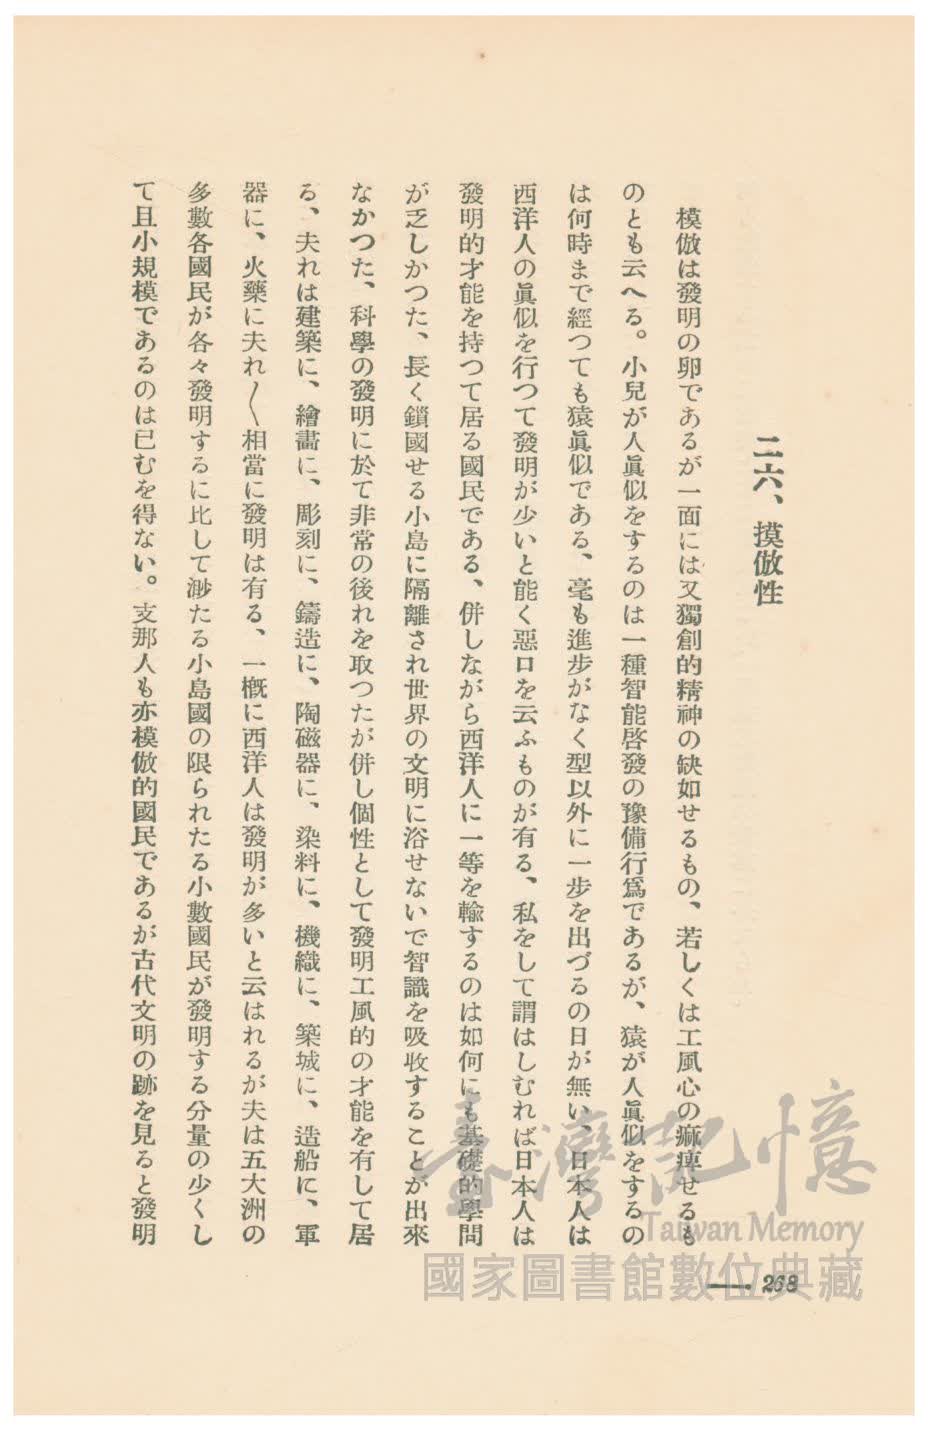 二六、摸倣性
模倣は發明の卵であるが一面には又獨創的精神の缺如せるもの、若しくは工風心の痲痺せるも
のとも云へる。小兒が人眞似をするのは一種智能啓發の豫備行爲であるが、猿が人眞似をするの
は何時まで經つても猿眞似である、毫も進步がなく型以外に一步を出づるの日が無い、日本人は
西洋人の眞似を行つて發明が少いと能く惡口を云ふものが有る、私をして謂はしむれば日本人は
發明的才能を持つて居る國民である、併しながら西洋人に一等を輸するのは如何にも基礎的學問
が乏しかつた、長く鎖國せる小島に隔離され世界の文明に浴せないで智識を吸收することが出來
なかつた、科學の發明に於て非常の後れを取つたが併し個性として發明工風的の才能を有して居
る、夫れは建築に、繪畵に、彫刻に、鑄造に、陶磁器に、染料に、機織に、築城に、造船に、軍
器に、火藥に夫れ〱相當に發明は有る、一槪に西洋人は發明が多いと云はれるが夫は五大洲の
多數各國民が各々發明するに比して渺たる小島國の限られたる小數國民が發明する分量の少くし
て且小規模であるのは已むを得ない。支那人も亦模倣的國民であるが古代文明の跡を見ると發明
268
臺灣記憶
Taiwan Memory
國家圖書館數位典藏